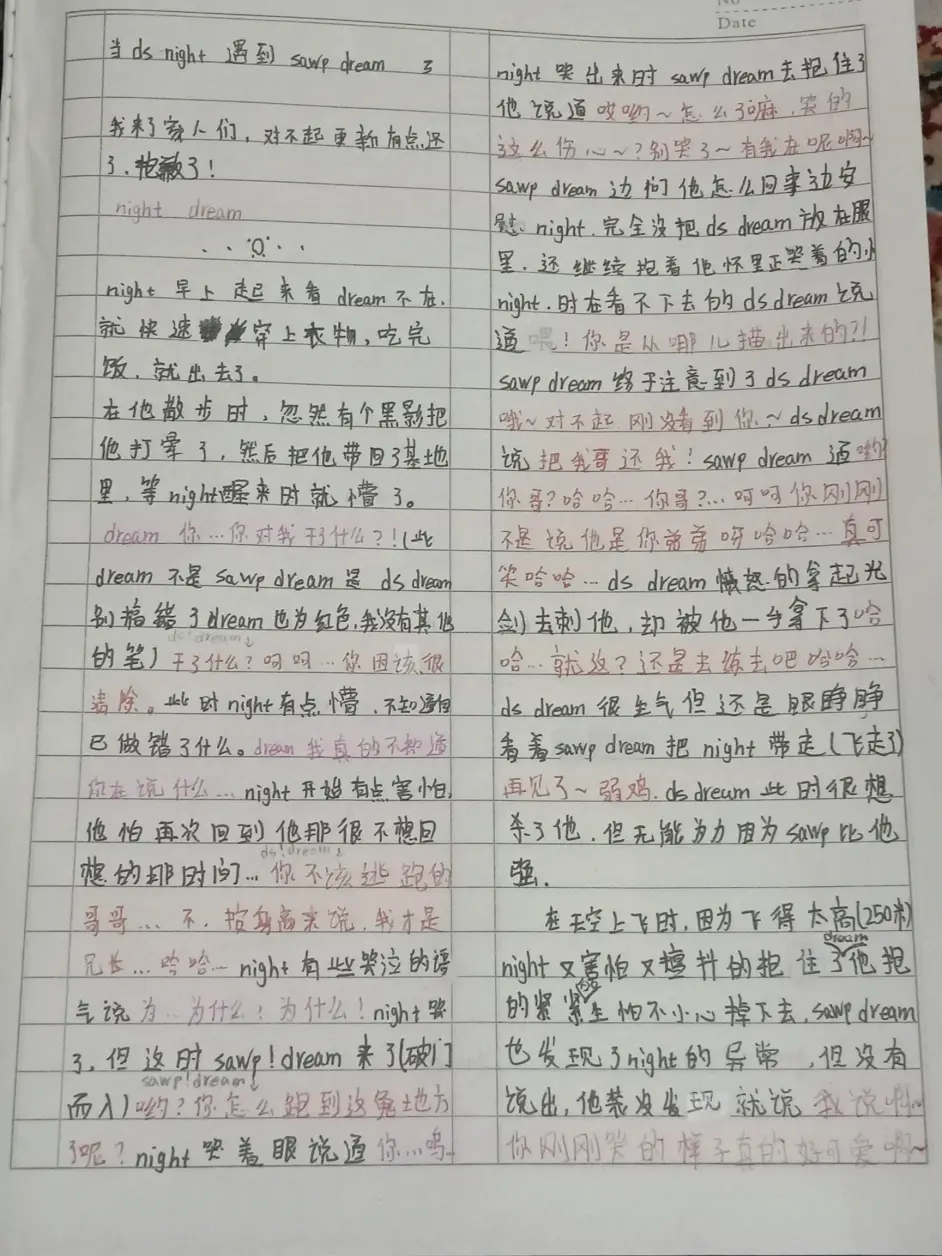 No
Date
当 ds night 遇到 sawp dream 3
我来了家人们，对不起更新有点迟
了．抱歉了！
night dream
night 早上 起来看 dream 不在．
就快速 穿上衣物，吃完
饭．就出去了。
在他散步时，忽然有个黑影把
他打晕了，然后把他带回了基地
里，等night醒来时就懵了。
dream 你…你对我干了什么？！（此
dream 不是 sawp dream 是 ds dream
别搞错了dream也为红色，我没有其他
ds!dream↓
的笔）干了什么？呵呵…你因该很
清除。此时night有点懵．不知道自
己做错了什么。dream 我真的不知道
你在说什么… night 开始有点害怕，
他怕再次回到他那很不想回
ds!dream↓
想的那时间… 你不该逃跑的
哥哥… 不．按身高来说，我才是
兄长…哈哈… night 有些哭泣的语
气说 为…为什么？为什么！night 哭
了，但这时 sawp!dream 来了（破门
sawp!dream↓
而入）哟？你怎么跑到这鬼地方
了呢？night 哭着眼说道 你…呜
night 哭出来时 sawp dream 去抱住了
他说道 哎哟～怎么了嘛．哭的
这么伤心～？别哭了～有我在呢啊～
sawp dream 边问他怎么回事边安
慰 night．完全没把 ds dream 放在眼
里．还继续抱着他怀里正哭着的小
night．时在看不下去的 ds dream 说
道 喂！你是从哪儿捎出来的？！
sawp dream 终于注意到了 ds dream
哦～对不起 刚没看到你～ds dream
说 把我哥还我！sawp dream 道 哟？
你哥？哈哈…你哥？…呵呵你刚刚
不是说他是你弟弟呀哈哈…真可
笑哈哈… ds dream 愤怒的拿起光
剑去刺他，却被他一手拿下了哈
哈…就这？还是去练去吧哈哈…
ds dream 很生气但还是眼睁睁
看着 sawp dream 把 night 带走（飞走了）
再见了～弱鸡．ds dream 此时很想
杀了他．但无能为力因为 sawp 比他
强．
在天空上飞时，因为飞得太高（250米）
dream
night 又害怕又 抖的抱住了他抱
的紧紧生怕不小心掉下去，sawp dream
也发现了night的异常，但没有
说出，他装没发现 就说 我说啊～
你刚刚哭的样子真的好可爱啊～